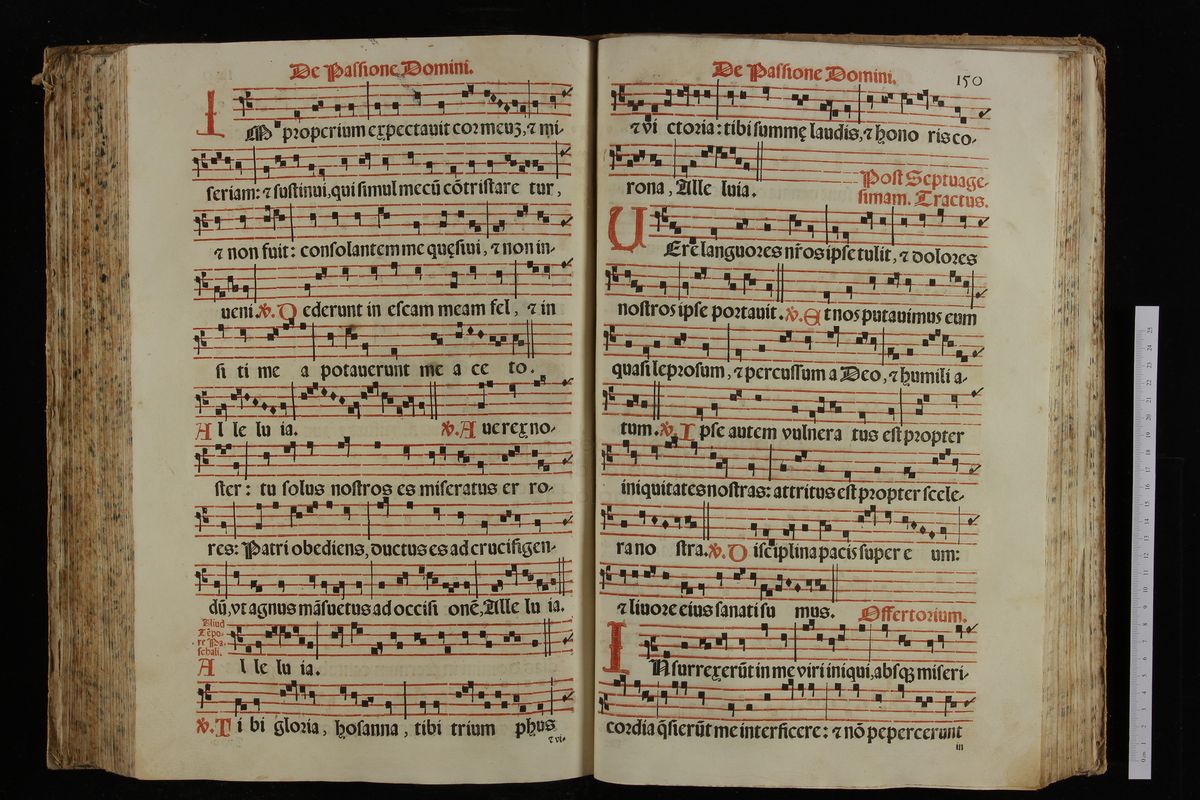 De Passione Domini.
IMproperium expectauit cor meuȝ, ⁊ mi-
seriam: ⁊ sustinui, qui simul mecū cōtristare tur,
⁊ non fuit: consolantem me quęsiui, ⁊ non in-
ueni. ℣. Dederunt in escam meam fel, ⁊ in
si ti me a potauerunt me a ce to.
Al le lu ia. ℣. Aue rex no-
ster: tu solus nostros es miseratus er ro-
res: Patri obediens, ductus es ad crucifigen-
dū, vt agnus māsuetus ad occisi onē, Alle lu ia.
Aliud
Tēpo-
re Pa-
schali.
Al le lu ia.
℣. Ti bi gloria, hosanna, tibi trium phus
⁊ vi-
De Passione Domini.
150
⁊ vi ctoria: tibi summę laudis, ⁊ hono ris co-
rona, Alle luia.
Post Septuage-
simam. Tractus.
UErē languores nr̄os ipse tulit, ⁊ dolores
nostros ipse portauit. ℣. Et nos putauimus eum
quasi leprosum, ⁊ percussum a Deo, ⁊ humili a-
tum. ℣. Ipse autem vulnera tus est propter
iniquitates nostras: attritus est propter scele-
ra no stra. ℣. Disciplina pacis super e um:
⁊ liuore eius sanati su mus. Offertorium.
INsurrexerūt in me viri iniqui, absqꝫ miseri-
cordia q̄sierūt me interficere: ⁊ nō pepercerunt
in